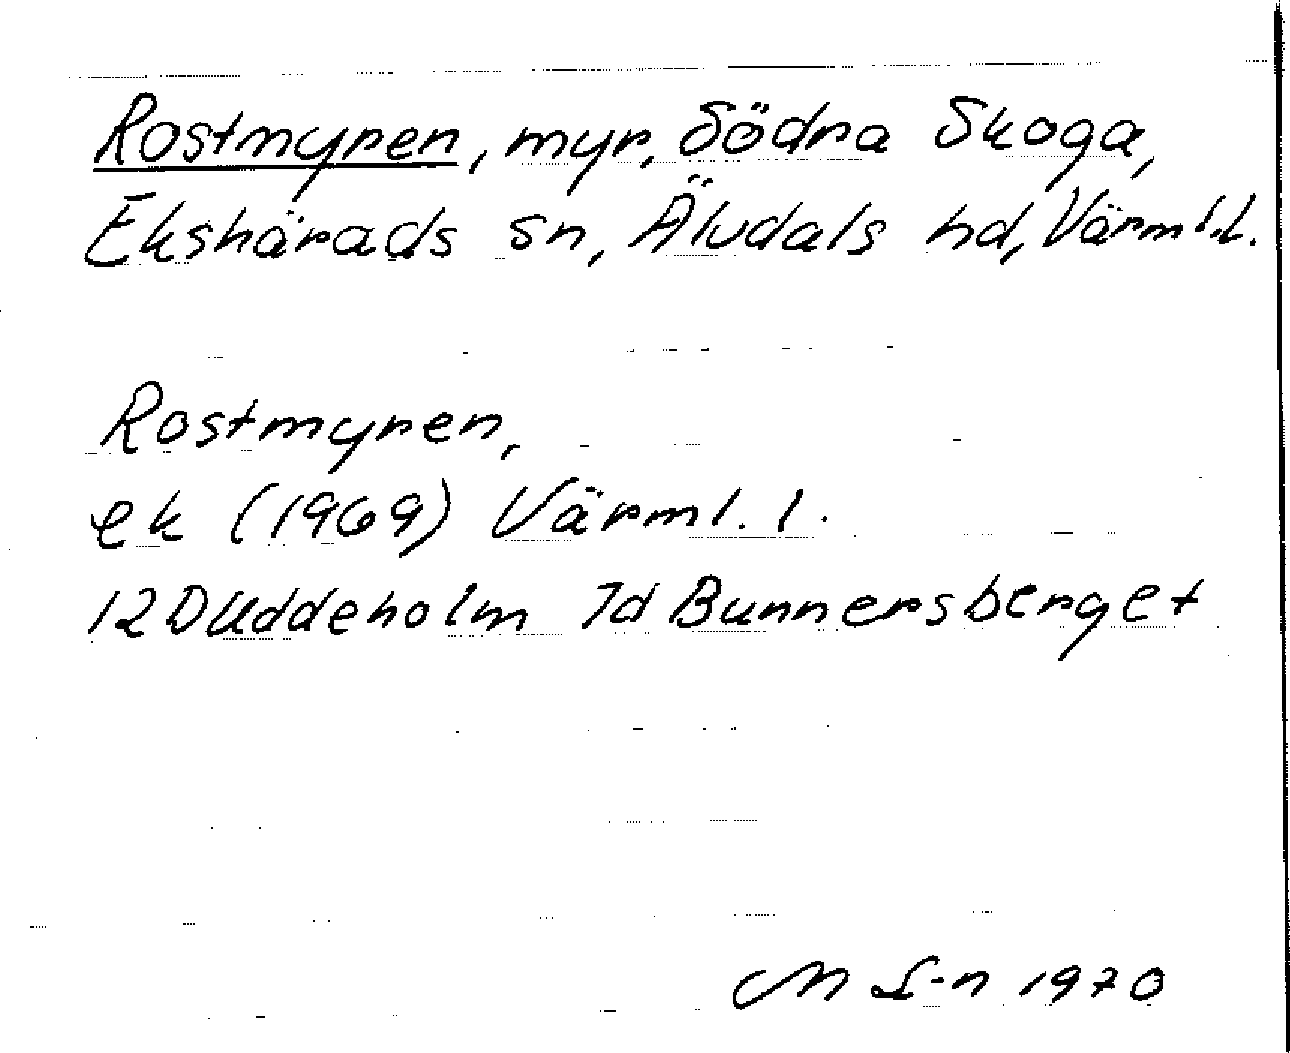 Rostmyren, myr, Södra Skoga,
Ekshärads sn, Älvdals hd, Värml.l.
Rostmyren,
ek (1969) Värml. l.
12D Uddeholm 7d Bunnersberget
M L-n 1970